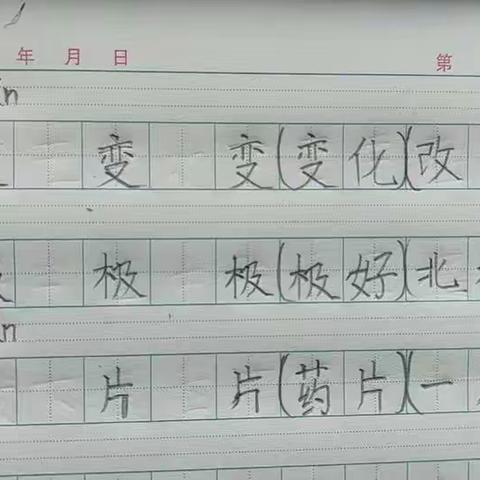 年 月 日 第
变 变(变化)(改
极 极(极好)(北
片 片(药片)(一